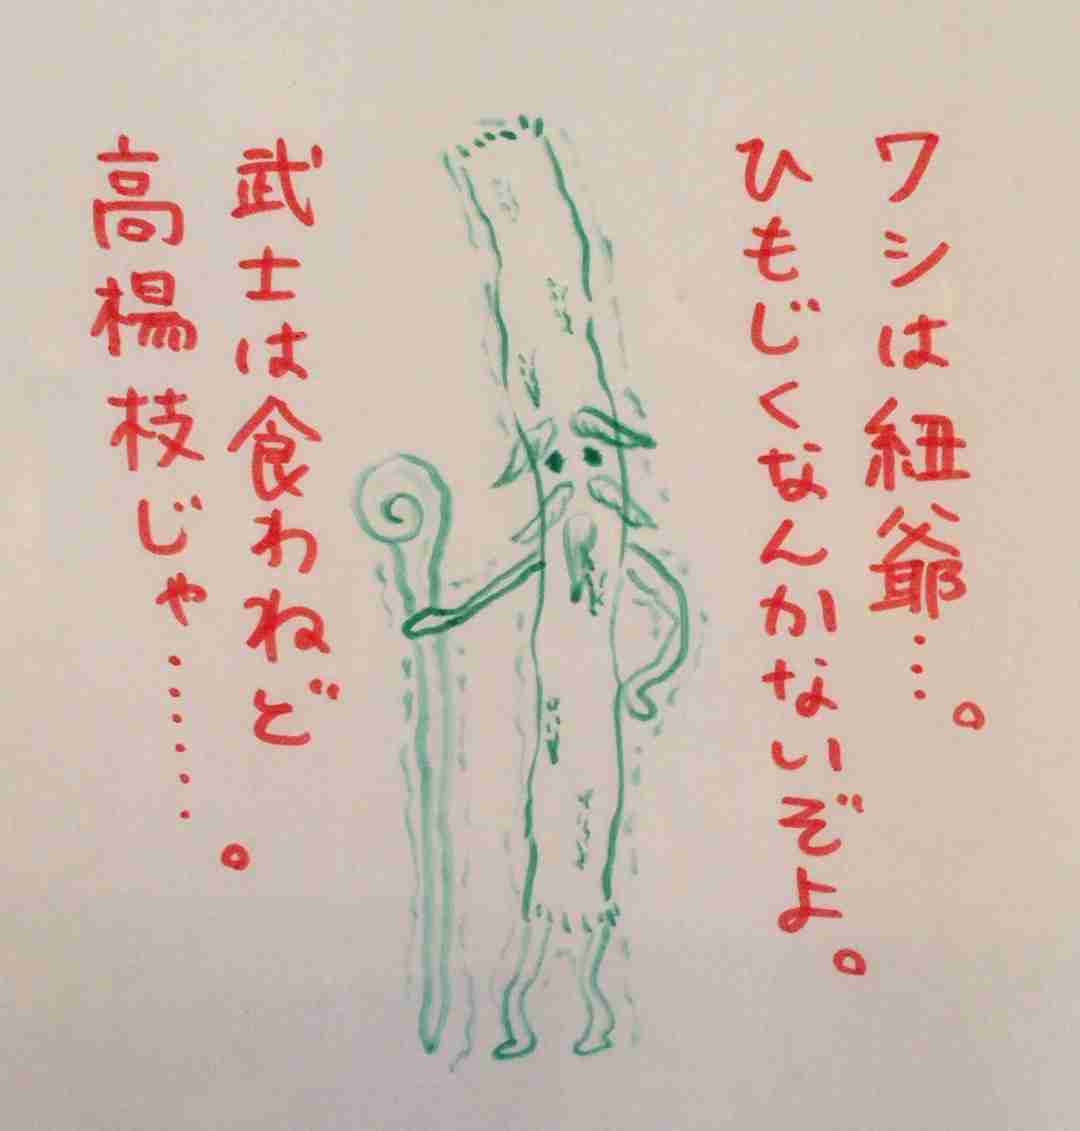 ワシは紐爺…。
ひもじくなんかないぞよ。
武士は食わねど
高楊枝じゃ……。